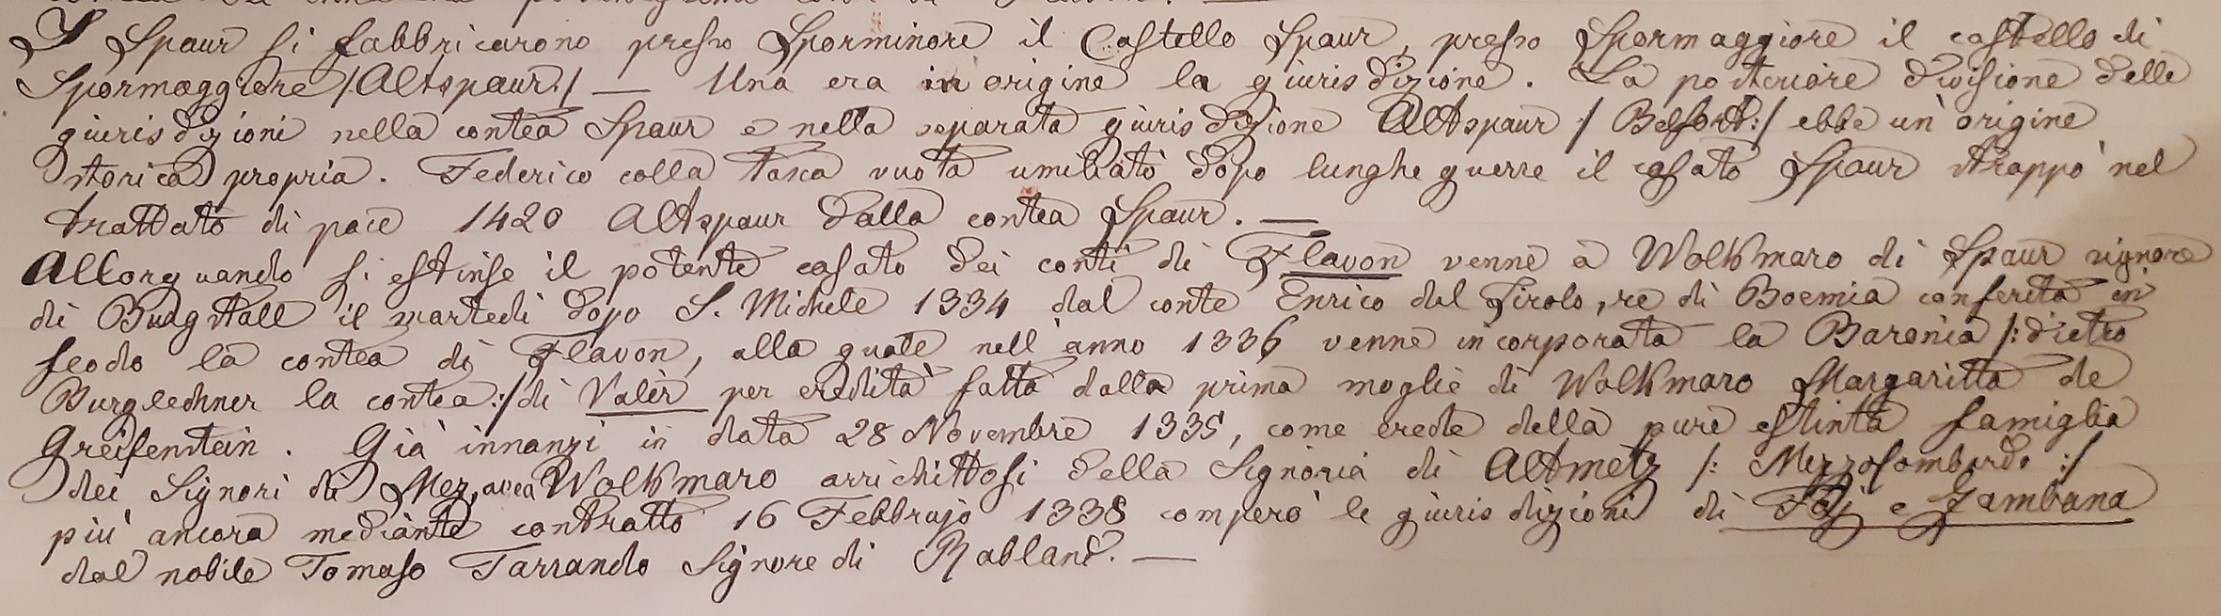 I Spaur si fabbricarono presso Sporminore il Castello Spaur, presso Spormaggiore il castello di
Spormaggiore /Altspaur:/ — Una era in origine la giurisdizione. La posteriore divisione delle
giurisdizioni nella contea Spaur e nella separata giurisdizione Altspaur /Belfort:/ ebbe un'origine
storica propria. Federico colla tasca vuota umiliato dopo lunghe guerre il casato Spaur strappò nel
trattato di pace 1420 Altspaur dalla contea Spaur. —
Allorquando si estinse il potente casato dei conti di Flavon venne a Wolkmaro di Spaur signore
di Burgstall il martedi dopo S. Michele 1334 dal conte Enrico del Tirolo, re di Boemia conferita in
feodo la contea di Flavon, alla quale nell'anno 1336 venne incorporata la Baronia /: dietro
Burglechner la contea:/ di Valèr per eredità fatta dalla prima moglie di Wolkmaro Margaritta de
Greifenstein. Già innanzi in data 28 Novembre 1335, come erede della pure estinta famiglia
dei Signori di Mez, avea Wolkmaro arrichittosi della Signoria di Altmetz /: Mezzolombardo :/
più ancora mediante contratto 16 Febbrajo 1338 comperò le giurisdizioni di Faj e Zambana
dal nobile Tomaso Tarrando Signore di Rabland. —